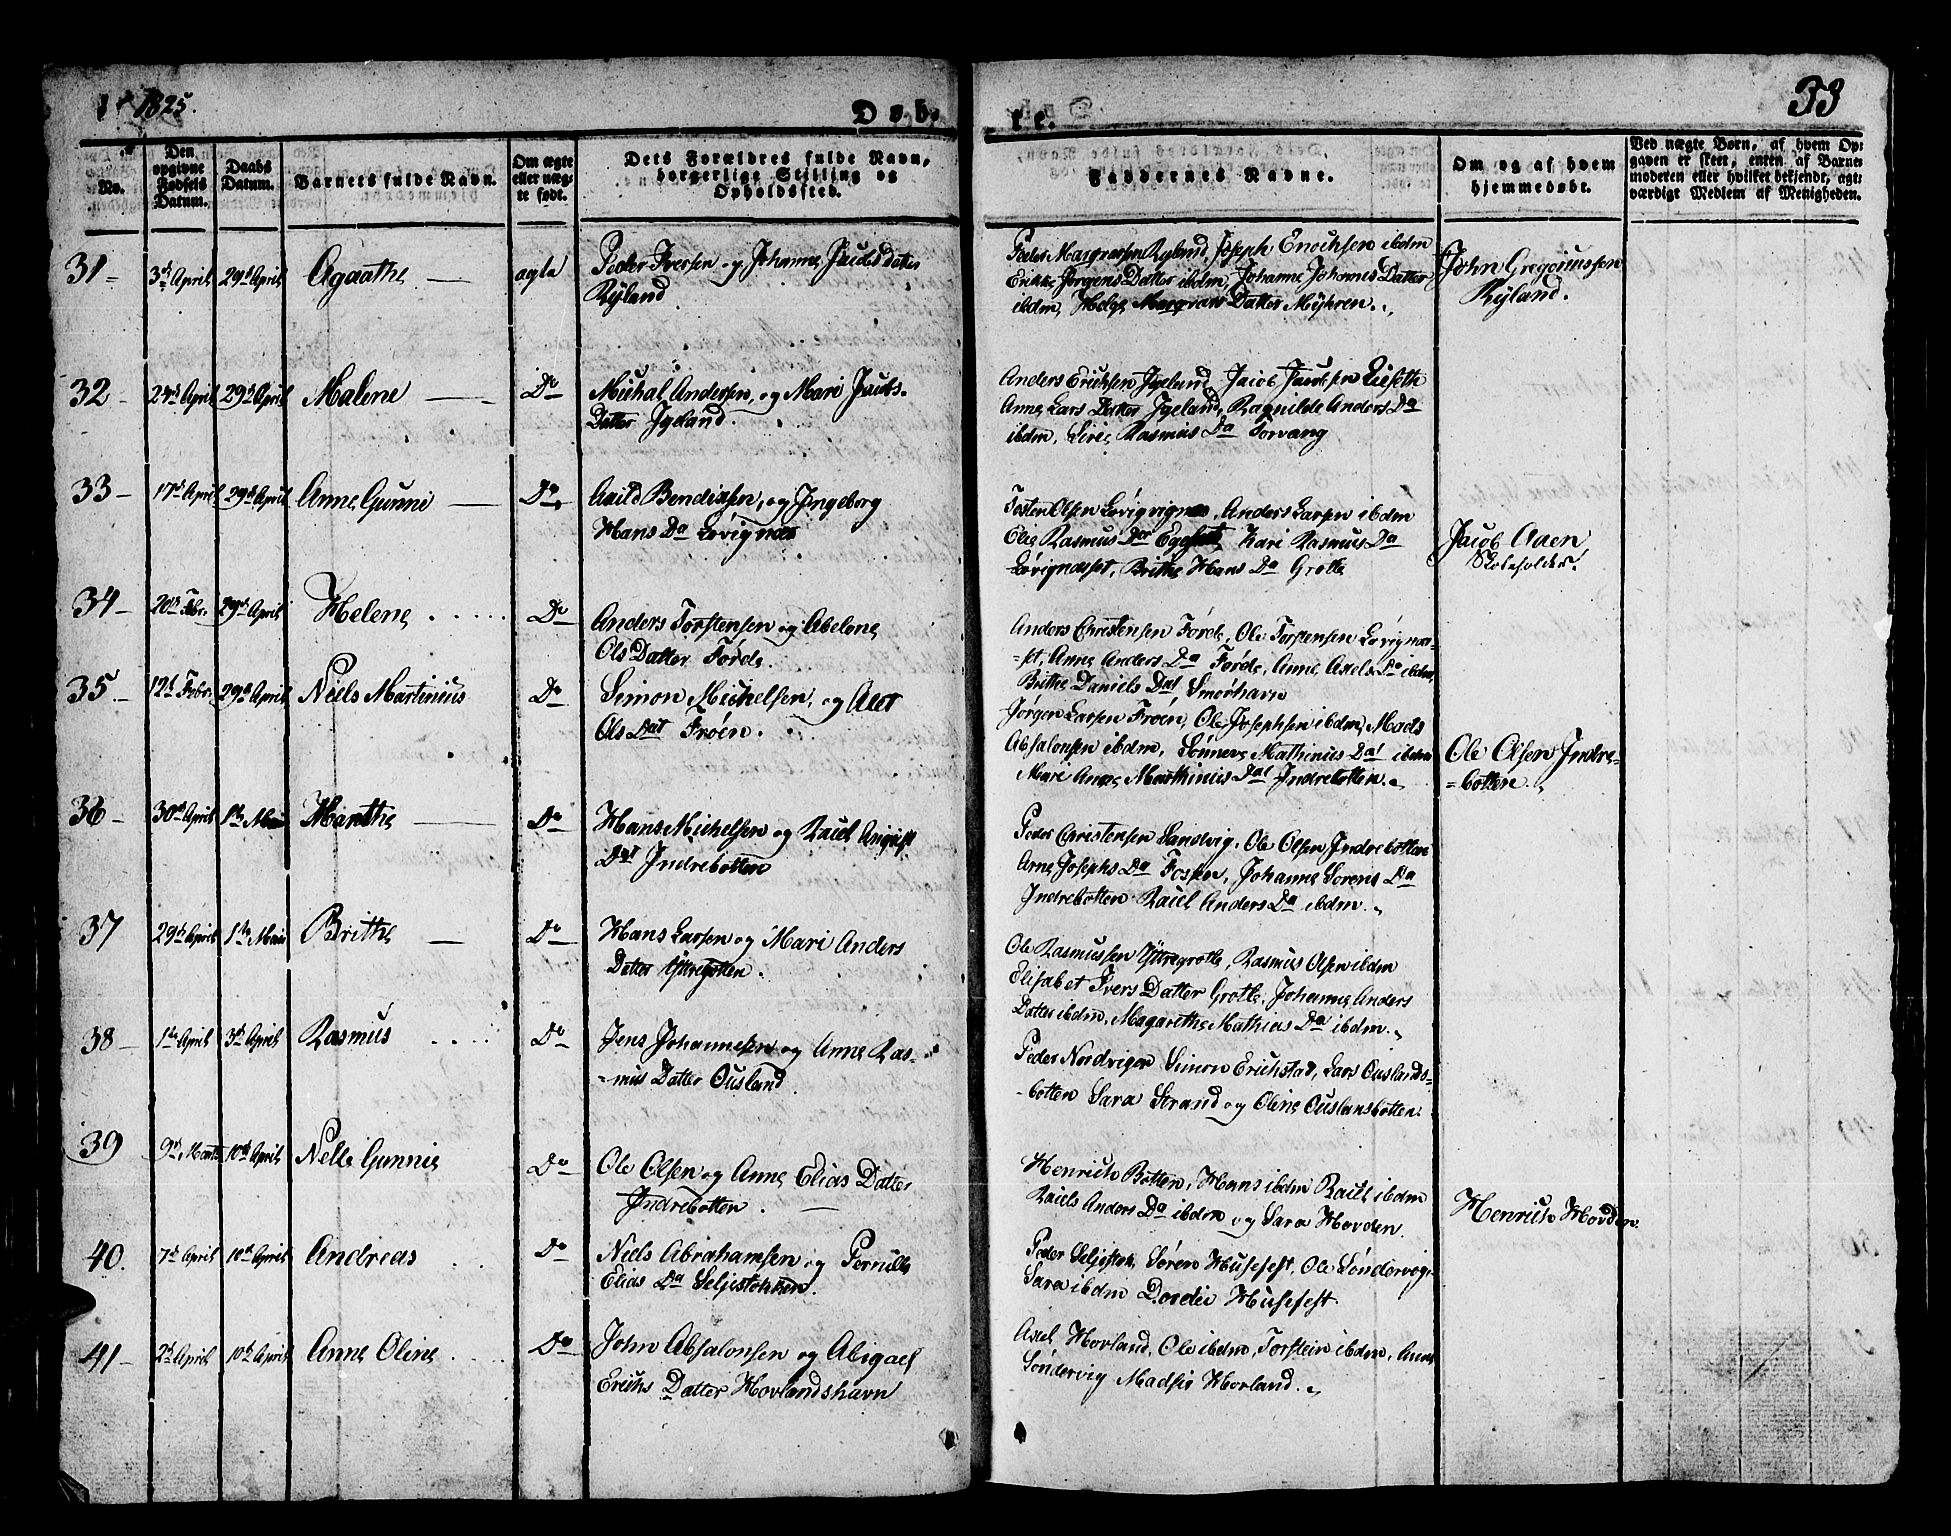 1825.
Døb-
te.
33
No.
Den opgivne Fødsels Datum.
Daabs Datum.
Barnets fulde Navn.
Om ægte eller uægte født.
Dets Forældres fulde Navn, borgerlige Stilling og Opholdssted.
Faddernes Navne.
Om og af hvem hjemmedøbt.
Ved uægte Børn, af hvem Opgaven er skeet, enten af Barnemoderen eller hvilket bekjendt, agtværdigt Medlem af Menigheden.
31- 3de April 29de April Agaathe ægte
Peder Iversen og Johanne Jacobs Datter
Ryland
Peder Magnussen Ryland, Joseph Enochsen ibdm
Erikke Jørgens Datter ibdm, Johanne Johannis Datter
ibdm, Helge Datter Myhren.
John Gregoriussen
Ryland.
32- 24de April 29de April Malene Do
Michal Andersen, og Mari Jacobs-
Datter Jgeland.
Anders Erichsen Jgeland, Jacob Jacobsen Liesethe
Anne Lars Datter Jgeland, Ragnilde Anders Da
ibdm, Sirie Rasmus Da Torvang
33- 17de April 29de April Anne Gunni Do
Auild Bendixsen, og Jngeborg
Hans Da Løvignæs
Torsten Olsen Løvigvignæs, Anders Larsen ibdm
Elie Rasmus Dat Kari Rasmus Da
Løvignæsset, Brithe Hans Da Grotte
Jacob Aaen
Skoleholder.
34- 20de Febr. 29de April Helene Do
Anders Torstensen og Abelone
Ols Datter Førde.
Anders Christensen Førde, Ole Torstensen Løvignæs-
=set, Anne Anders Da Førde, Anne Axels Da ibdm,
Brithe Daniels Dat Smørhavn
35- 12te Febr. 29de April Neels Martinius Do
Simon Michelsen, og Alet
Ols Dat Frøen.
Jørgen Larsen Frøen, Ole Josephsen ibdm, Mads
Absalonsen ibdm, Sønneve Mathinius Dat ibdm
Mari Anne Marthinius Dat Jndrebotten.
Ole Olsen Jndre-
=botten.
36- 30te April 1ste Mai Marthe Do
Hans Michelsen og Rachel
Dat Jndrebotten
Peder Christensen Sandvig, Ole Olsen Jndrebotten
Anne Josephs Da Fossen, Johanne Sorens Da
Jndrebotten Rachel Anders Da ibdm.
37 29de April 1ste Mai Brithe Do
Hans Larsen og Mari Anders
Datter Yttrebotten.
Ole Rasmussen Yttregrotte, Rasmus Olsen ibdm
Elisabet Ivers Datter Grotte, Johanne Anders
Datter ibdm, Magarethe Mathias Da ibdm.
38- 1ste April 3de April Rasmus Do
Jens Johannesen og Anne Ras-
=mus Datter Ousland
Peder Nordvigen Simon Erichstad, Lars Ouslands-
=botten Sara Strand og Oline Ouslansbotten
39 9de Marts 10de April Nelle Gunnie Do
Ole Olsen og Anne Elias Datter
Jndrebotten.
Henrich Botten, Hans ibdm Rachel ibdm
Raiels Anders Da ibdm og Sara Hovden.
Henrich Hovden
40. 7de April 10de April Andreas Do
Niels Abrahamsen og Pernille
Elias Da Seljestokken.
Peder Seljestok, Søren Husefest, Ole Søndervog,
Sara ibdm Dordei Husefest.
41- 2de April 10de April Anne Oline Do
John Absalonsen og Abigael
Erichs Datter Hovlandshavn
Axel Hovland, Ole ibdm, Torstein ibdm, Anne
Søndervig Madsie Hovland.